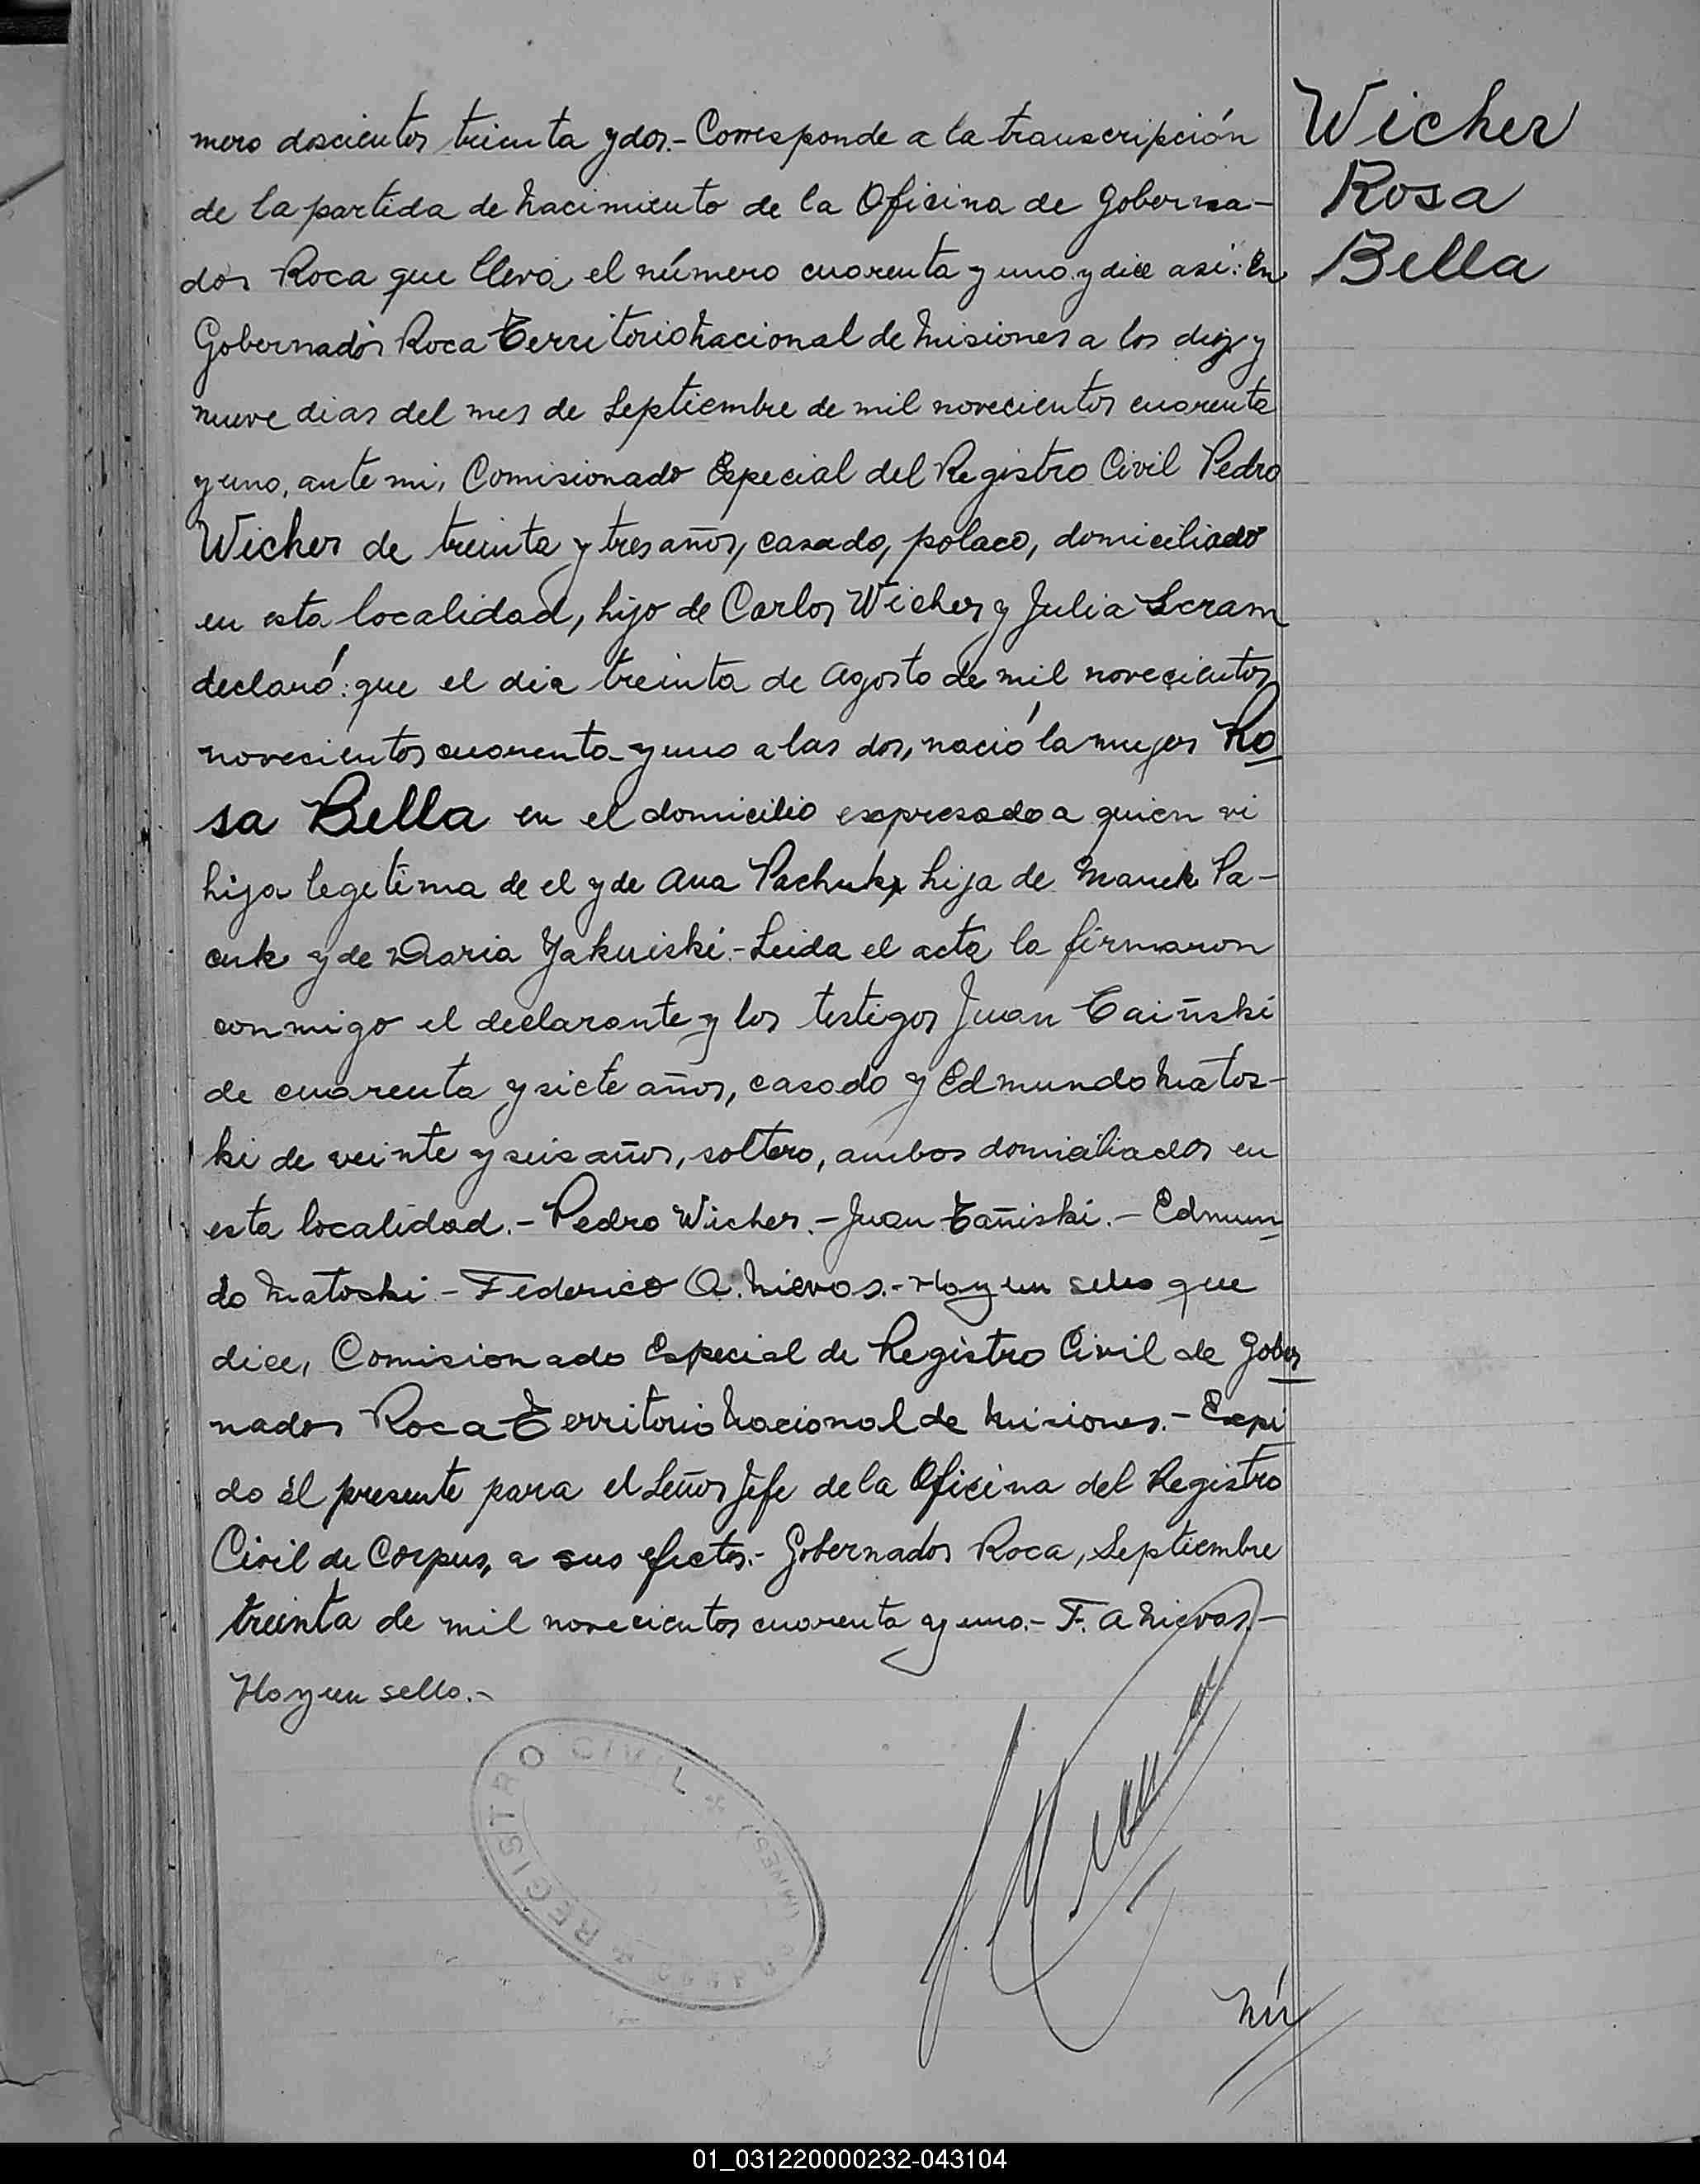 mero doscientos treinta y dos.- Corresponde a la transcripción
de la partida de nacimiento de la Oficina de Goberna-
dor Roca que lleva el número cuarenta y uno y dice asi: En
Gobernador Roca Territorio Nacional de Misiones a los diez y
nueve dias del mes de Septiembre de mil novecientos cuarenta
y uno, ante mi, Comisionado Especial del Registro Civil Pedro
Wicher de treinta y tres años, casado, polaco, domiciliado
en esta localidad, hijo de Carlos Wicher y Julia Scram
declaró: que el dia treinta de Agosto de mil novecientos
novecientos cuarenta y uno a las dos, nació la mujer Ro
sa Bella en el domicilio expresado a quien vi
hija legitima de el y de Ana Pachuk hija de Marek Pa-
cuk y de Maria Yakuiski.- Leida el acta la firmaron
conmigo el declarante y los testigos Juan Taiñski
de cuarenta y siete años, casado y Edmundo Matos-
ki de veinte y seis años, soltero, ambos domiciliados en
esta localidad.- Pedro Wicher.- Juan Tañiski.- Edmun
do Matoski - Federico A. Nievas.- Hay un sello que
dice, Comisionado Especial de Registro Civil de Gober
nador Roca Territorio Nacional de Misiones.- Expi
do él presente para el Señor Jefe de la Oficina del Registro
Civil de Corpus, a sus efectos.- Gobernador Roca, Septiembre
treinta de mil novecientos cuarenta y uno.- F. A Nievas.-
Hay un sello.-
Wicher
Rosa
Bella
REGISTRO CIVIL
Nú
01_031220000232-043104